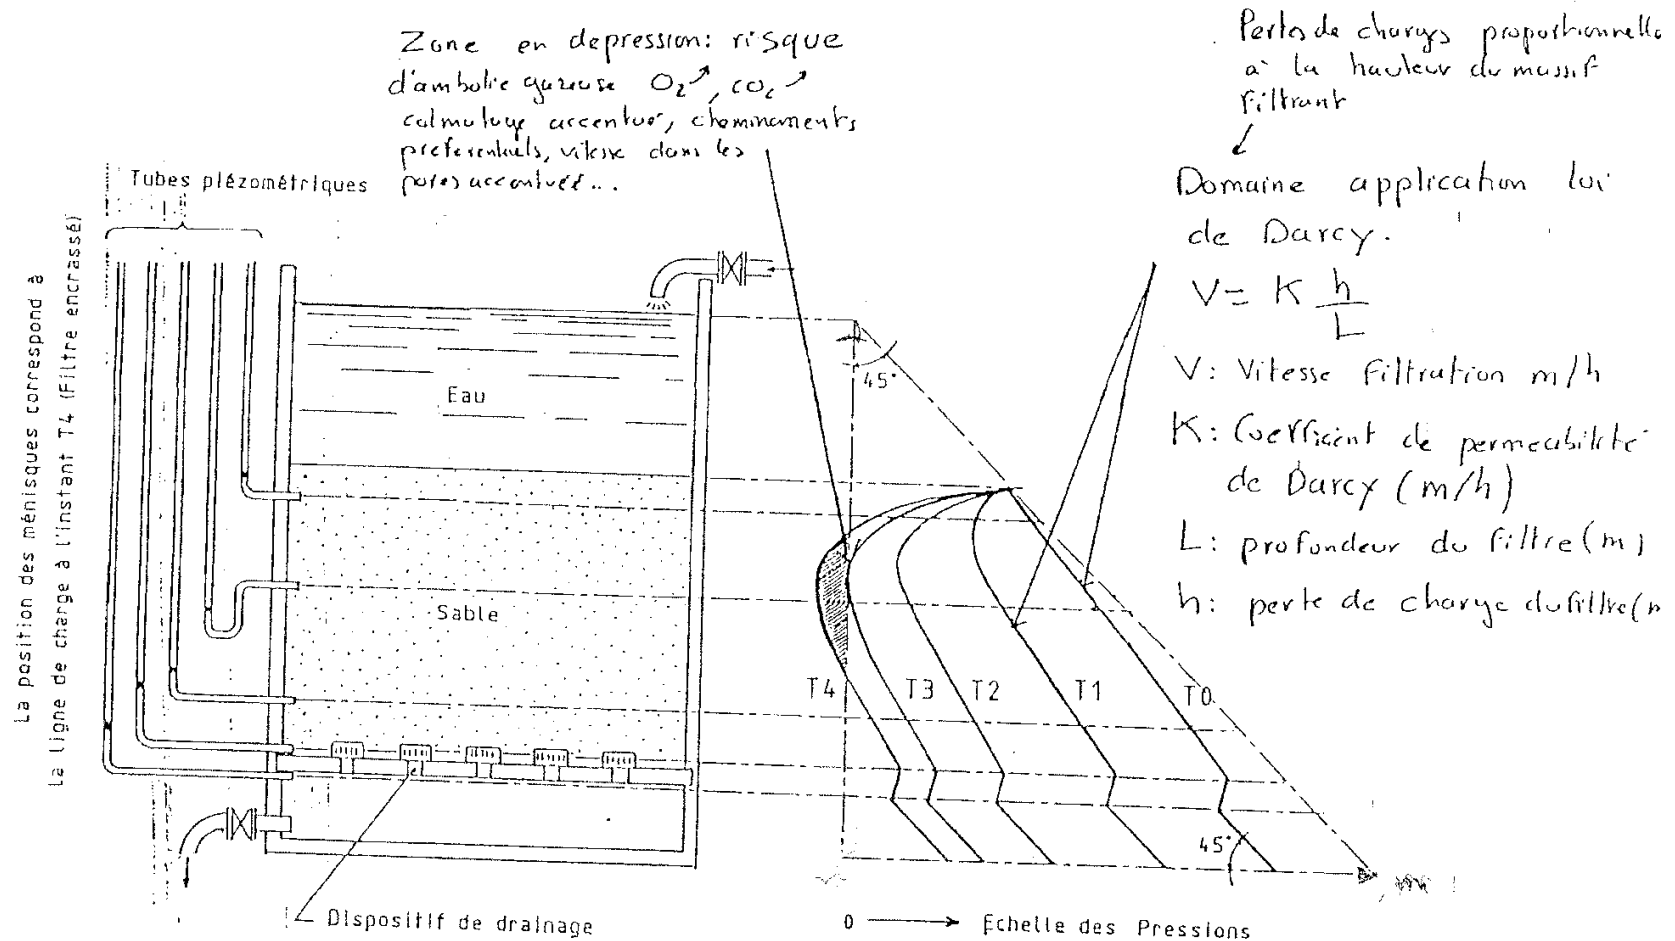 Zone en depression: risque
d'ambolie gazeuse O₂↗, CO₂↗
colmatage accentué, cheminements
preferentiels, vitesse dans les
pores accentuée...
Pertes de charges proportionnelle
à la hauteur du massif
filtrant
Domaine application loi
de Darcy.
V = K h/L
V: Vitesse Filtration m/h
K: Coefficient de permeabilité
de Darcy (m/h)
L: profondeur du filtre (m)
h: perte de charge du filtre (m
Tubes piézométriques
La position des ménisques correspond à
La ligne de charge à l'instant T4 (Filtre encrassé)
Eau
Sable
45°
T4 T3 T2 T1 T0
45°
Dispositif de drainage
0 → Echelle des Pressions